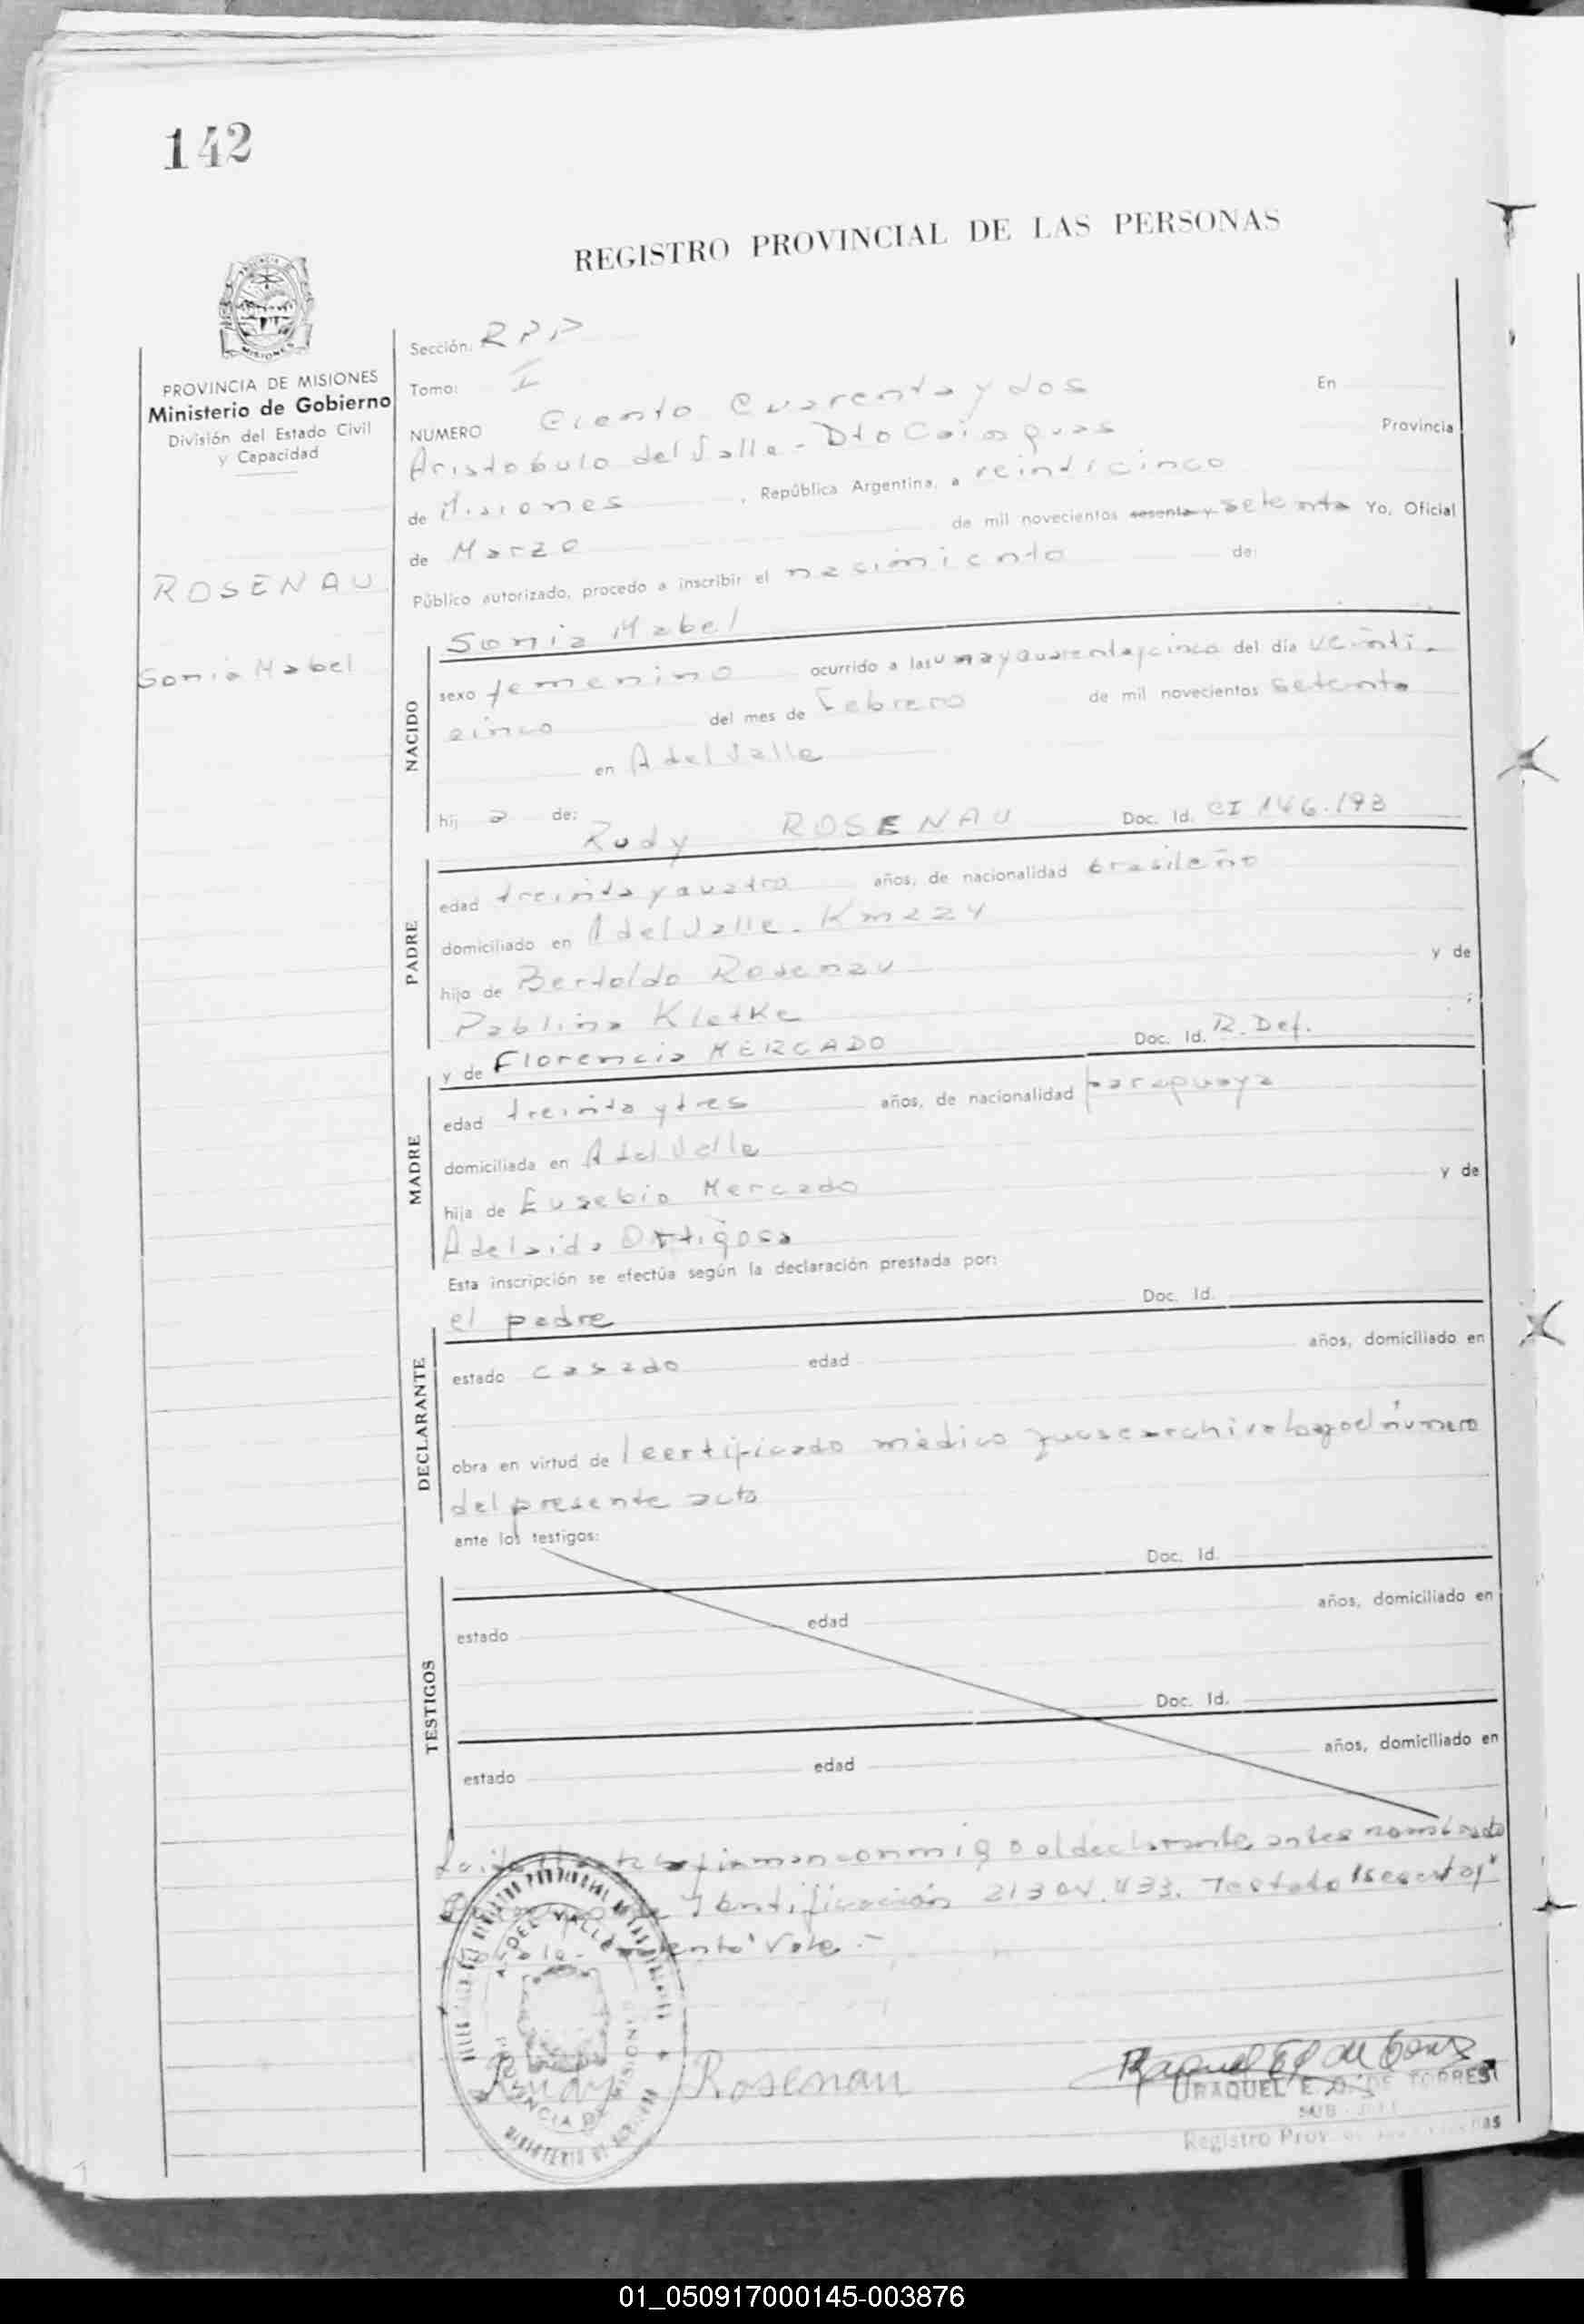 142
REGISTRO PROVINCIAL DE LAS PERSONAS
MISIONES
PROVINCIA DE MISIONES
Ministerio de Gobierno
División del Estado Civil
y Capacidad
ROSENAU
Sonia Mabel
Sección: RPP
Tomo: I
NUMERO Ciento Cuarenta y dos En
Aristobulo del Valle - Dto Cainguas Provincia
de Misiones, República Argentina, a veinticinco
de Marzo de mil novecientos sesenta y setenta Yo, Oficial
Público autorizado, procedo a inscribir el nacimiento de:
Sonia Mabel
NACIDO
sexo femenino ocurrido a las una y cuarenta y cinco del día veinti-
cinco del mes de Febrero de mil novecientos setenta
en A del Valle
hij a de: Rudy ROSENAU Doc. Id. CI 146.193
PADRE
edad treinta y cuatro años, de nacionalidad brasileño
domiciliado en A del Valle - Km 224
hijo de Bertoldo Rosenau y de
Pablina Kletke
y de Florencia MERCADO Doc. Id. R. Def.
MADRE
edad treinta y tres años, de nacionalidad paraguaya
domiciliada en A del Valle
hija de Eusebio Mercado y de
Adelaida Ortigosa
Esta inscripción se efectúa según la declaración prestada por:
el padre Doc. Id.
DECLARANTE
estado casado edad años, domiciliado en
obra en virtud de certificado médico que se archiva bajo el número
del presente acta
ante los testigos:
Doc. Id.
TESTIGOS
estado edad años, domiciliado en
Doc. Id.
estado edad años, domiciliado en
firman conmigo el declarante antes nombrado
Identificación 21304.433. Testado "sesenta y"
Vale.-
A. DEL VALLE
PROVINCIA DE MISIONES
MINISTERIO DE GOBIERNO
Rudy Rosenau
RAQUEL E. DE TORRES
SUB
Registro Prov
01_050917000145-003876